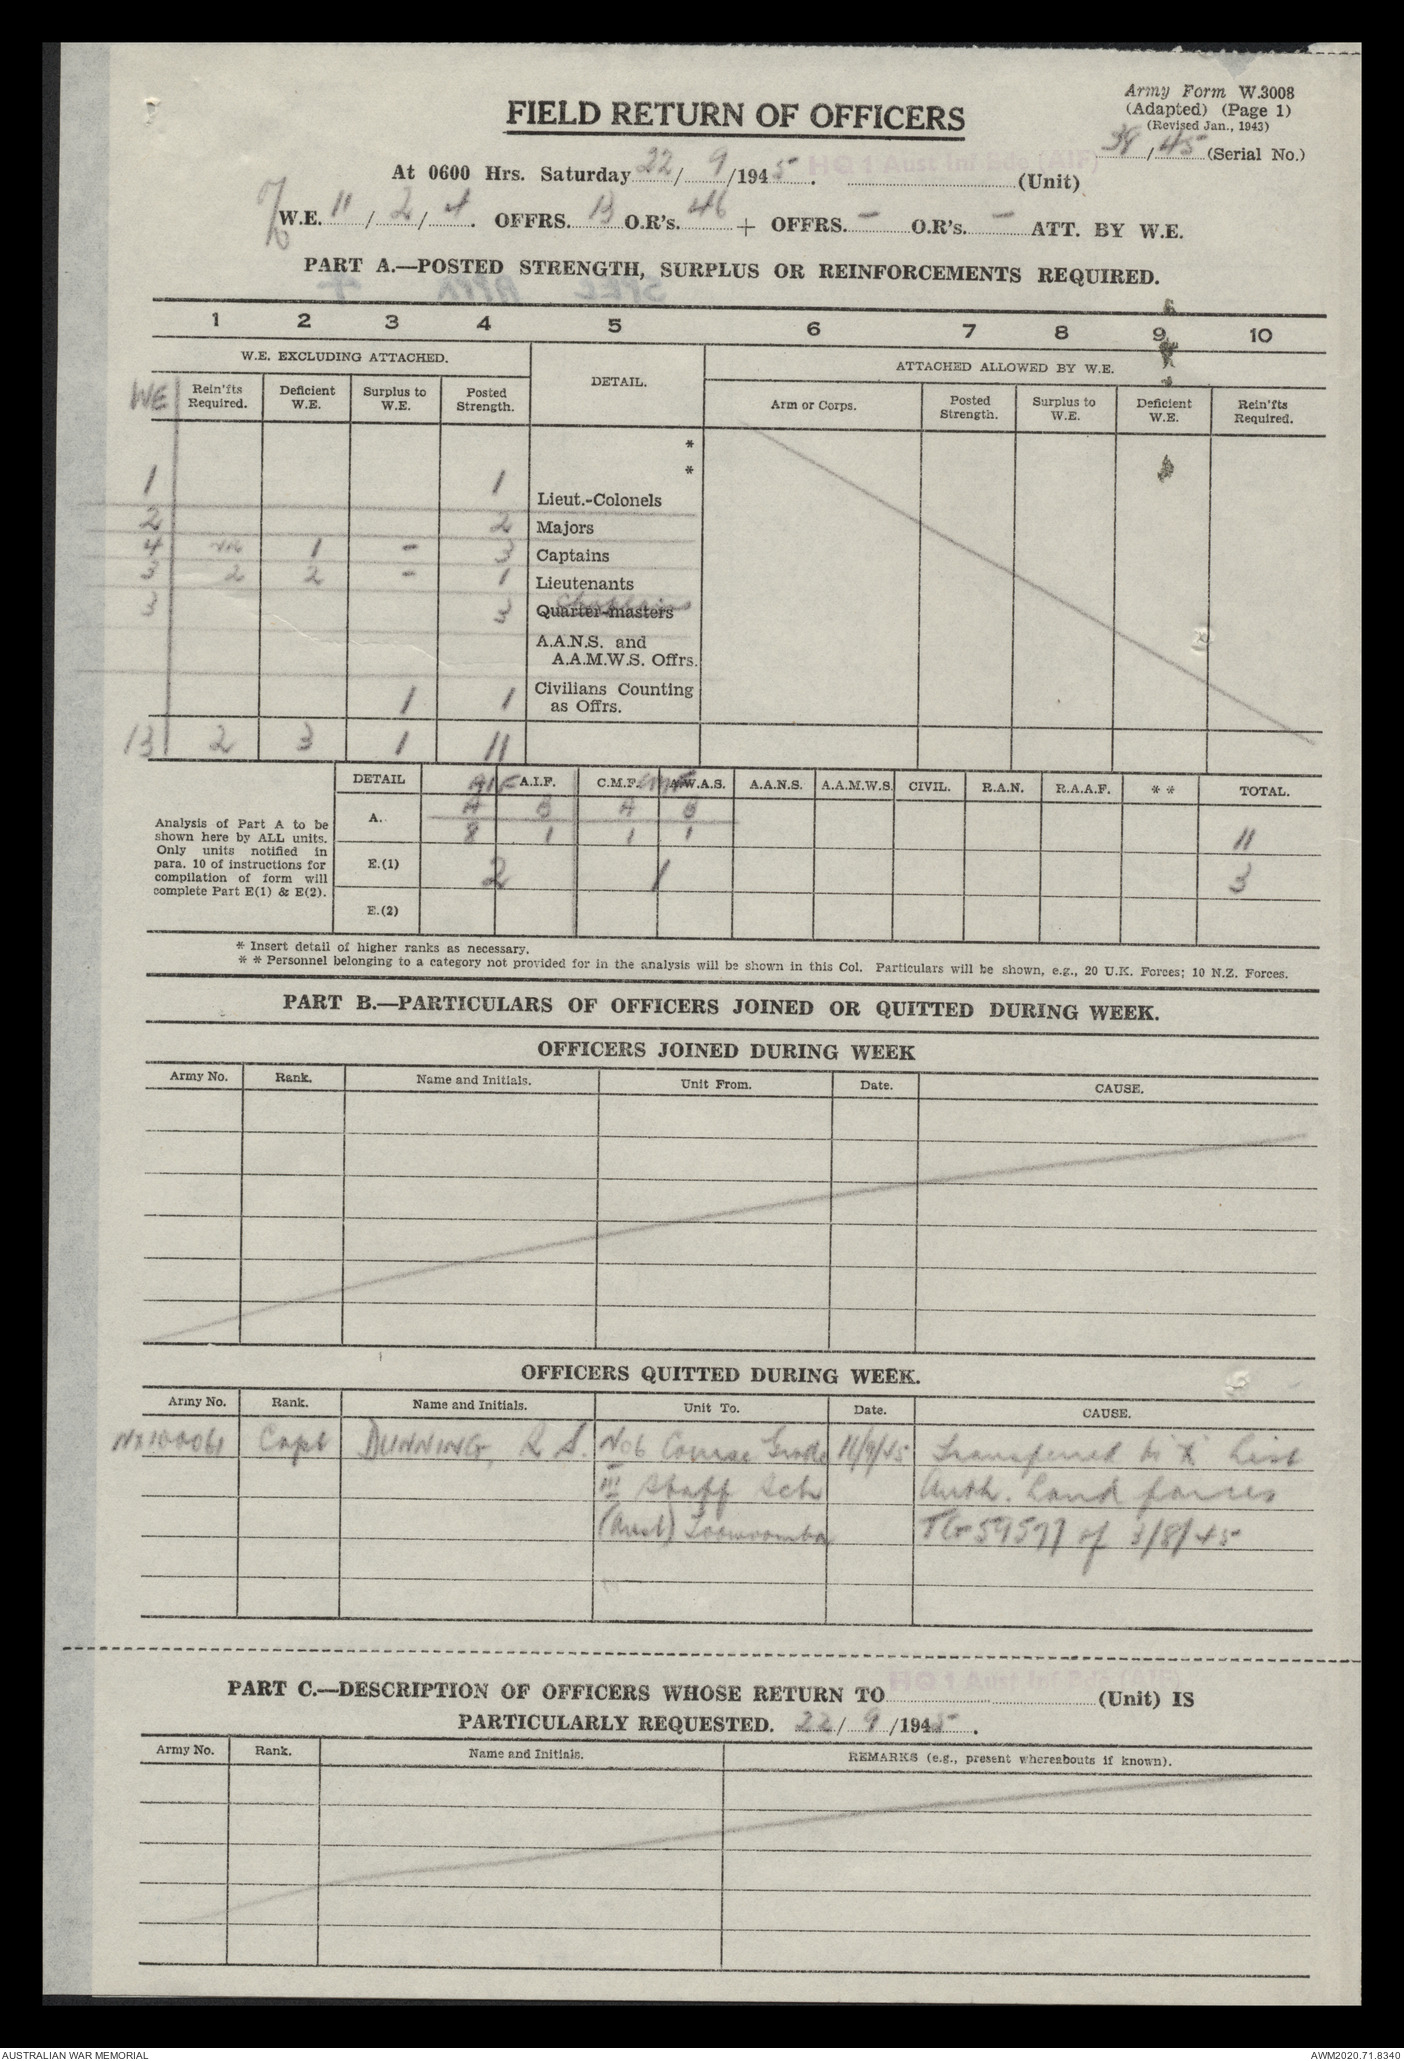 Army Form W.3008
(Adapted) (Page 1)
(Revised Jan., 1943)
FIELD RETURN OF OFFICERS
38/45 (Serial No.)
At 0600 Hrs. Saturday 22/ 9 /1945. HQ 1 Aust Inf Bde (AIF) (Unit)
W.E. 11 / 2 / 4. OFFRS. 13 O.R's. 46 + OFFRS. - O.R's. - ATT. BY W.E.
PART A.—POSTED STRENGTH, SURPLUS OR REINFORCEMENTS REQUIRED.
1 2 3 4 5 6 7 8 9 10
W.E. EXCLUDING ATTACHED. DETAIL. ATTACHED ALLOWED BY W.E.
WE Rein'fts Required. Deficient W.E. Surplus to W.E. Posted Strength. Arm or Corps. Posted Strength. Surplus to W.E. Deficient W.E. Rein'fts Required.
*
*
1 1 Lieut.-Colonels
2 2 Majors
4 1 - 3 Captains
3 2 2 - 1 Lieutenants
3 3 Quarter-masters Chaplains
A.A.N.S. and
A.A.M.W.S. Offrs.
1 1 Civilians Counting
as Offrs.
13 2 3 1 11
DETAIL AIF A.I.F. C.M.F. CMF A.W.A.S. A.A.N.S. A.A.M.W.S. CIVIL. R.A.N. R.A.A.F. * * TOTAL.
Analysis of Part A to be
shown here by ALL units.
Only units notified in
para. 10 of instructions for
compilation of form will
complete Part E(1) & E(2).
A. A B A B
8 1 1 1 11
E.(1) 2 1 3
E.(2)
* Insert detail of higher ranks as necessary.
* * Personnel belonging to a category not provided for in the analysis will be shown in this Col. Particulars will be shown, e.g., 20 U.K. Forces; 10 N.Z. Forces.
PART B.—PARTICULARS OF OFFICERS JOINED OR QUITTED DURING WEEK.
OFFICERS JOINED DURING WEEK
Army No. Rank. Name and Initials. Unit From. Date. CAUSE.
OFFICERS QUITTED DURING WEEK.
Army No. Rank. Name and Initials. Unit To. Date. CAUSE.
NX100061 Capt DUNNING, R S. No6 Course Grade 11/9/45 Transferred to 'X' List
III Staff Sch Auth. Land forces
(Aust) Toowoomba TG59577 of 3/8/45
PART C.—DESCRIPTION OF OFFICERS WHOSE RETURN TO HQ 1 Aust Inf Bde (AIF) (Unit) IS
PARTICULARLY REQUESTED. 22/ 9 /1945.
Army No. Rank. Name and Initials. REMARKS (e.g., present whereabouts if known).
AUSTRALIAN WAR MEMORIAL AWM2020.71.8340